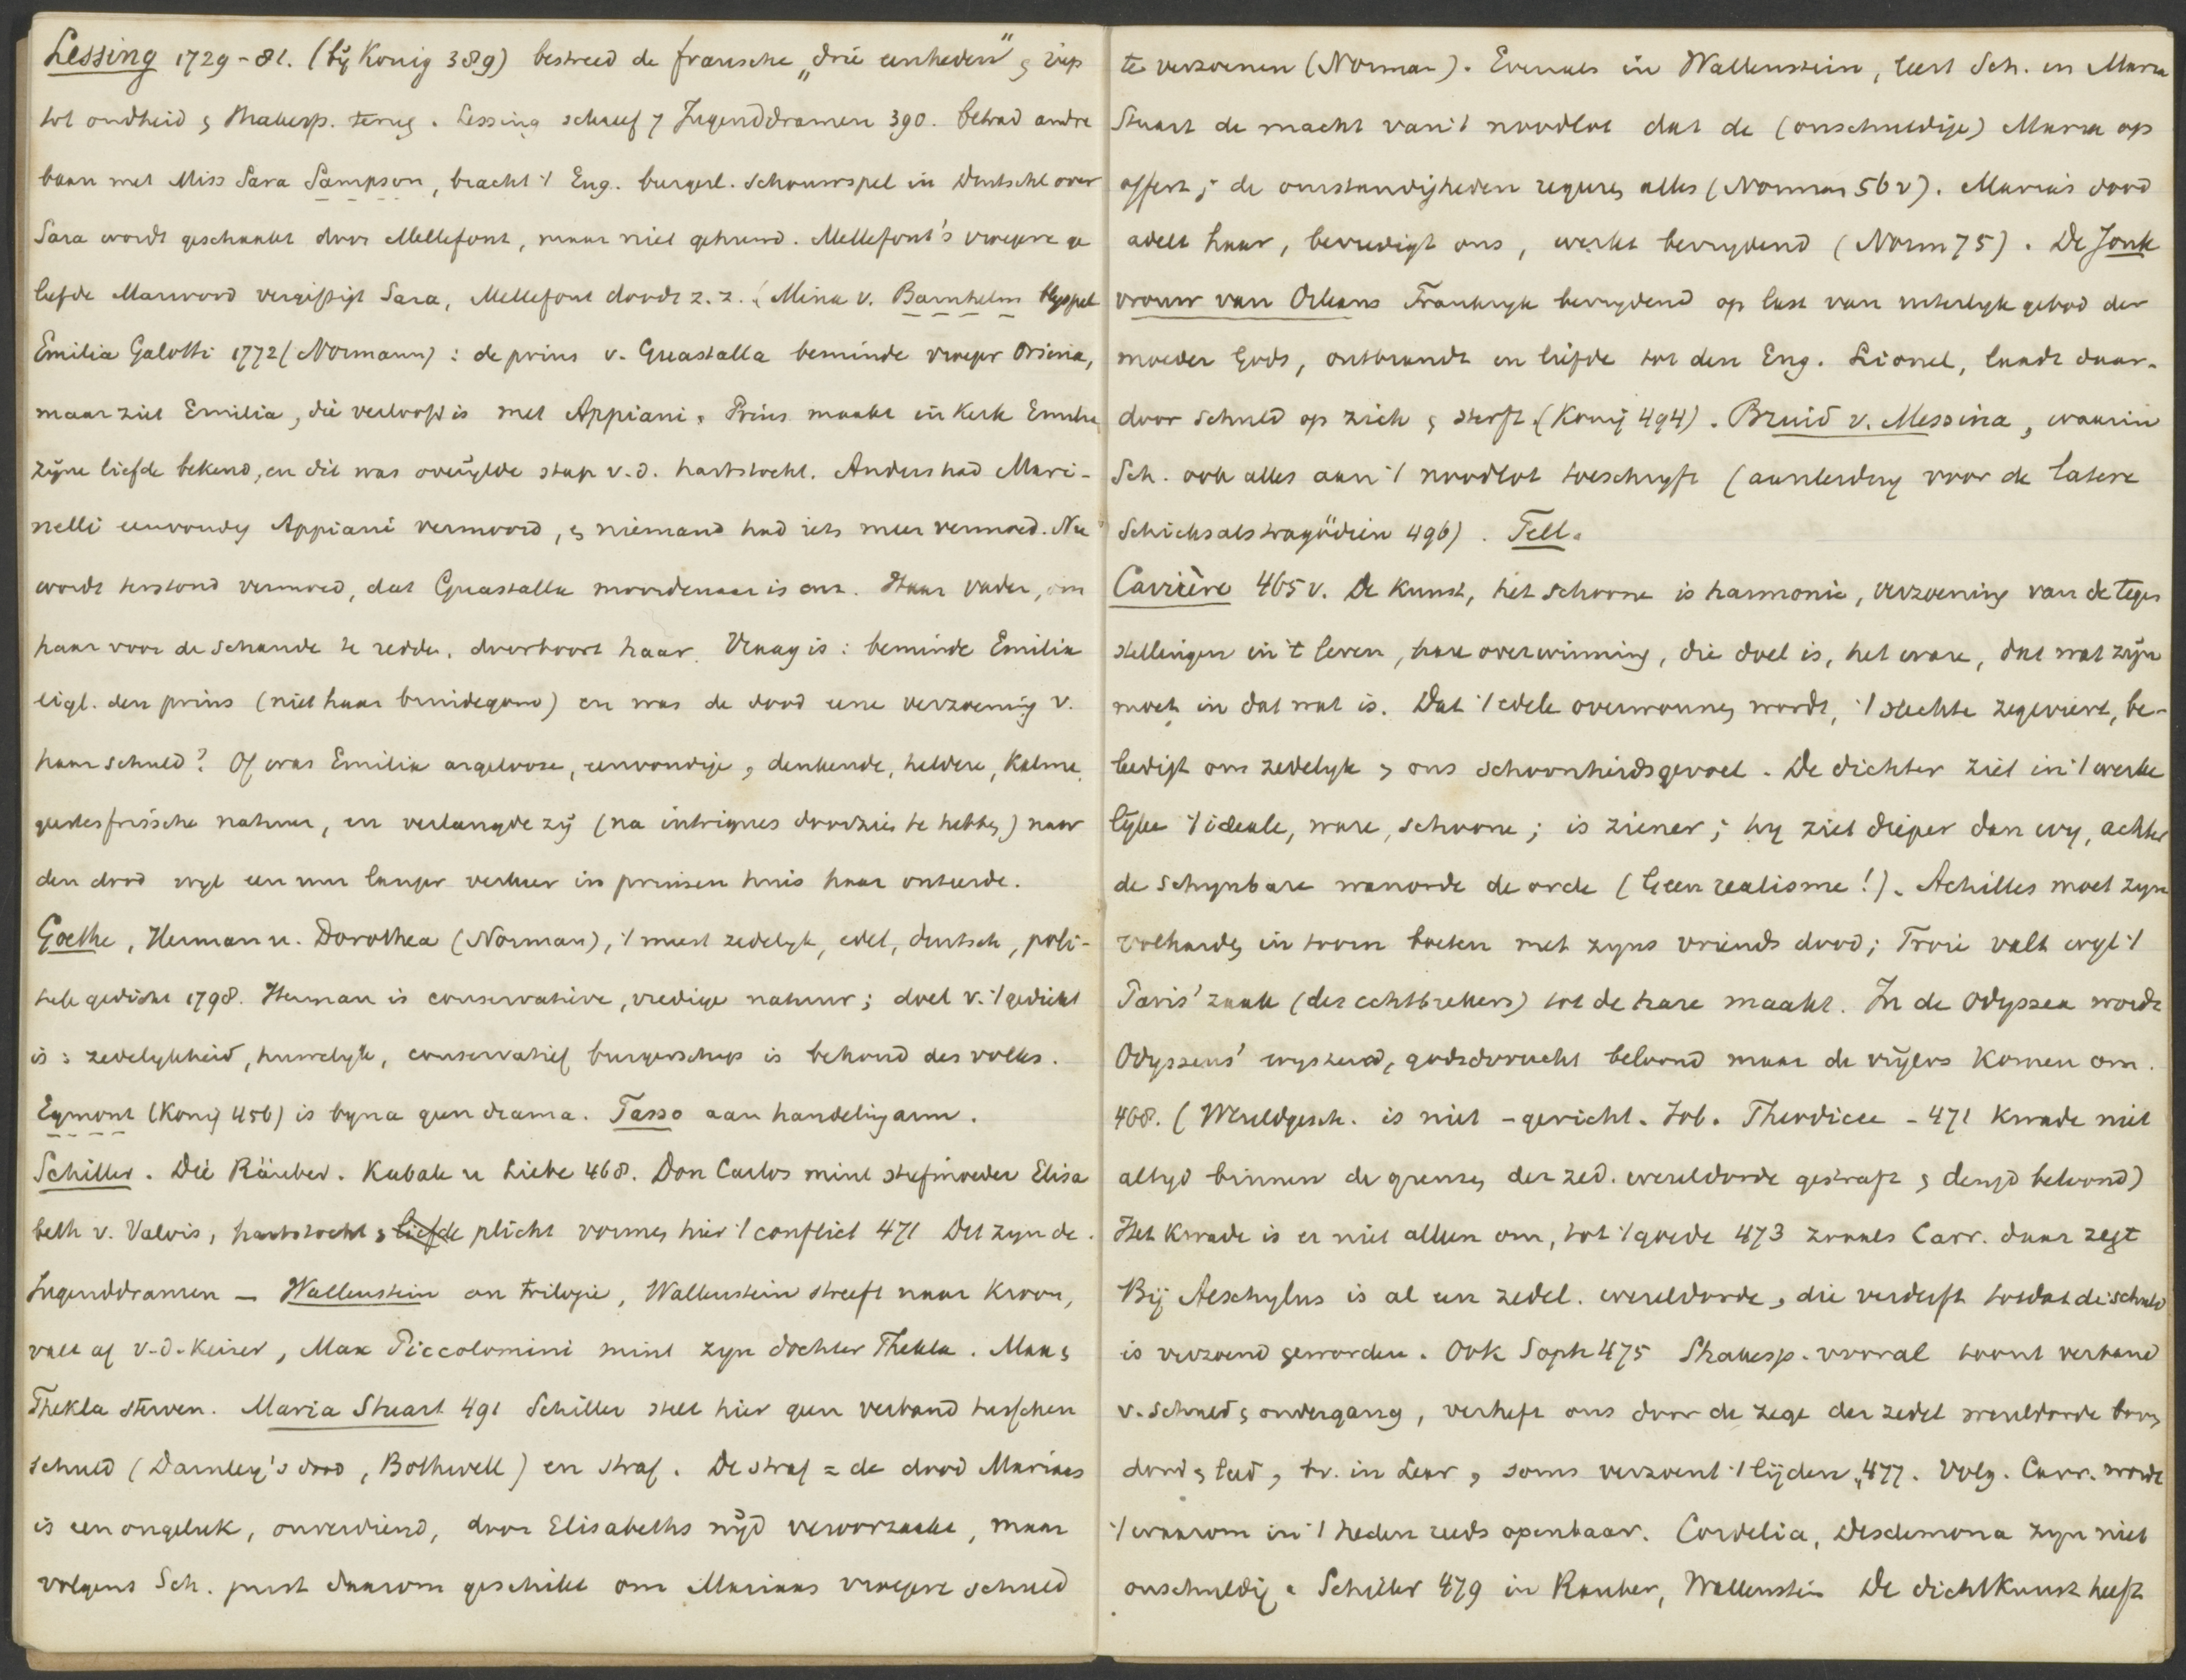 Lessing 1729-81. (bij Konig 389) bestreed de fransche „drie eenheden" & riep
tot oudheid & Shakesp. terug. Lessing schreef 7 Jugenddramen 390. Betrad andre
baan met Miss Sara Sampson, bracht 't Eng. burgerl. schouwspel in Duitschl over
Sara wordt geschaakt door Mellefont, maar niet gehuwd. Mellefont's vroegere ge
liefde Marwood vergiftigt Sara, Mellefont doodt z. z. Mina v. Barnhelm blyspel
Emilia Galotti 1772 (Normann): de prins v. Guastalla beminde vroeger Orsina,
maar ziet Emilia, die verloofd is met Appiani. Prins maakt in kerk Emilia
zijne liefde bekend, en dit was overijlde stap v.d. hartstocht. Anders had Mari-
nelli eenvoudig Appiani vermoord, & niemand had iets meer vermoed. Nu
wordt terstond vermoed, dat Guastalla moordenaar is enz. Haar vader, om
haar voor de schande te redden, doorboort haar. Vraag is: beminde Emilia
eigl. den prins (niet haar bruidegom) en was de dood eene verzoening v.
haar schuld? Of was Emilia argeloose, eenvoudige, denkende, heldere, kalme,
geestesfrissche natuur, en verlangde zij (na intrigues doorzien te hebben) naar
den dood wyl een uur langer verkeer in prinsen huis haar onteerde.
Goethe, Herman u. Dorothea (Norman), 't meest zedelyk, edel, duitsch, poli-
tiek gedicht 1798. Herman is conservatieve, vredige natuur; doel v. 't gedicht
is: zedelykheid, huwelyk, conservatief burgerschap is behoud des volks.
Egmont (Konig 456) is byna geen drama. Tasso aan handeling arm.
Schiller. Die Räuber. Kabale u Liebe 468. Don Carlos mint stiefmoeder Elisa
beth v. Valois, hartstocht & liefde plicht vormen hier 't conflict 471 Dit zyn de
Jugenddramen — Wallenstein een trilogie, Wallenstein streeft naar kroon,
valt af v.d. Keizer, Max Piccolomini mint zyn dochter Thekla. Max &
Thekla sterven. Maria Stuart 491 Schiller stelt hier geen verband tusschen
schuld (Darnley's dood, Bothwell) en straf. De straf = de dood Marias
is een ongeluk, onverdiend, door Elisabeths nijd veroorzaakt, maar
volgens Sch. juist daarom geschikt om Marias vroegere schuld
te verzoenen (Norman). Evenals in Wallenstein, leert Sch. in Maria
Stuart de macht van 't noodlot dat de (onschuldige) Maria op
offert; de omstandigheden regeren alles (Norman 56 v). Maria's dood
adelt haar, bevredigt ons, werkt bevrydend (Norm 75). De Jonk
vrouw van Orleans Frankryk bevrydend op last van uiterlyk gebod der
moeder Gods, ontbrandt in liefde tot den Eng. Lionel, laadt daar-
door schuld op zich & sterft. (Konig 494). Bruid v. Messina, waarin
Sch. ook alles aan 't noodlot toeschryft (aanleiding voor de latere
Schicksalstragödien 496). Tell.
Carrière 465 v. De kunst, het schoone is harmonie, verzoening van de tegen
stellingen in 't leven, hare overwinning, die doel is, het ware, dat wat zijn
moet in dat wat is. Dat 't edele overwonnen wordt, 't slechte zegeviert, be-
leedigt ons zedelyk & ons schoonheidsgevoel. De dichter ziet in 't werke
lijke 't ideale, ware, schoone; is ziener; hy ziet dieper dan wy, achter
de schynbare wanorde de orde (Geen realisme!). Achilles moet zyn
volharden in toorn boeten met zyns vriends dood; Troie valt wyl 't
Paris' zaak (des echtbrekers) tot de hare maakt. In de Odyssea wordt
Odysseus' wysheid, godsdvrucht beloond maar de vrijers komen om.
468. (Wereldgesch. is niet - gericht. Job. Theodicee - 471 kwade niet
altyd binnen de grenzen der zed. wereldorde gestraft & deugd beloond)
Het kwade is er niet alleen om, tot 't goede 473 zooals Carr. daar zegt
Bij Aeschylus is al een zedel. wereldorde, die verderft totdat de schuld
is verzoend geworden. Ook Soph 475 Shakesp. vooral toont verband
v. schuld & ondergang, verheft ons door de zege der zedel wereldorde boven
dood & leed, bv. in Lear, soms verzoent 't lijden 477. Volg. Carr. wordt
't waarom in 't heden reeds openbaar. Cordelia, Desdemona zyn niet
onschuldig. Schiller 479 in Rauber, Wallenstein De dichtkunst heeft